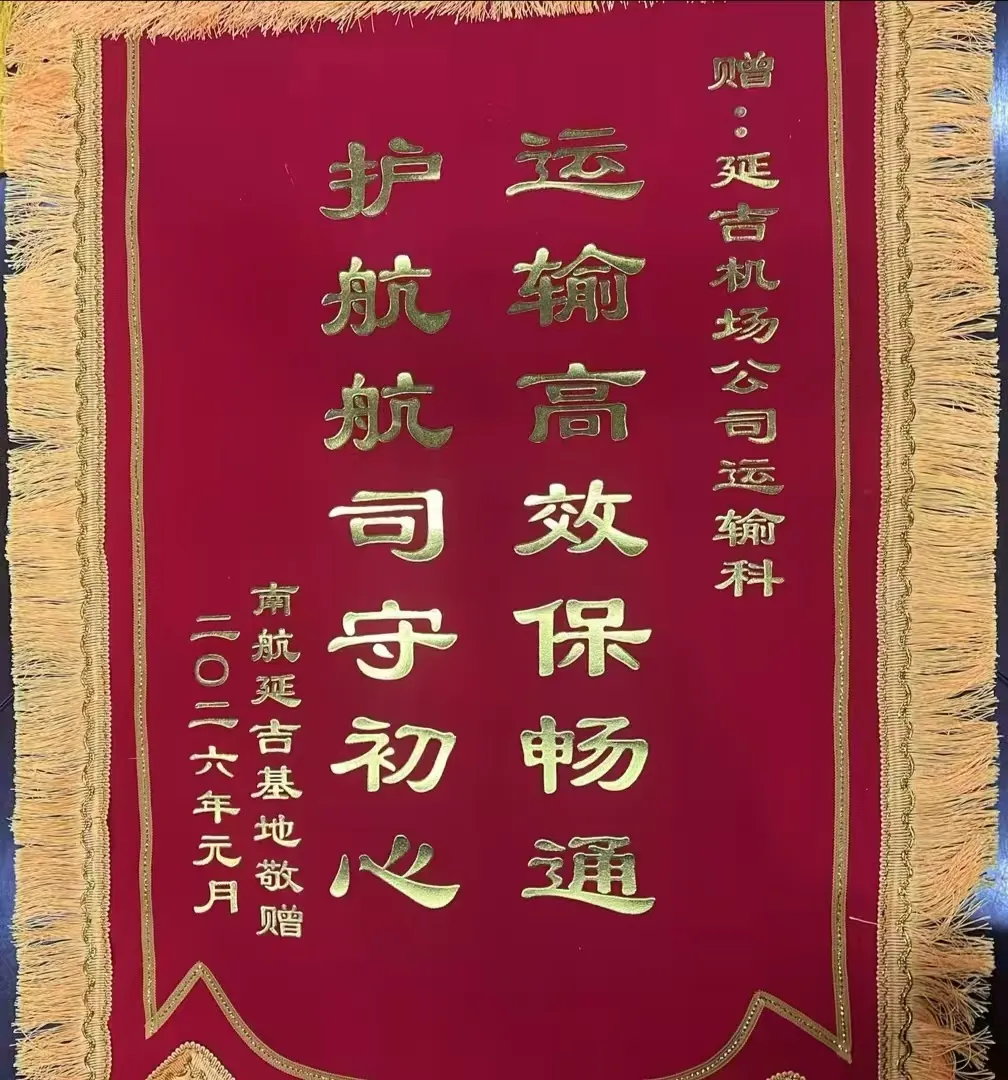 赠：延吉机场公司运输科
运输高效保畅通
护航航司守初心
南航延吉基地敬赠
二〇二六年元月